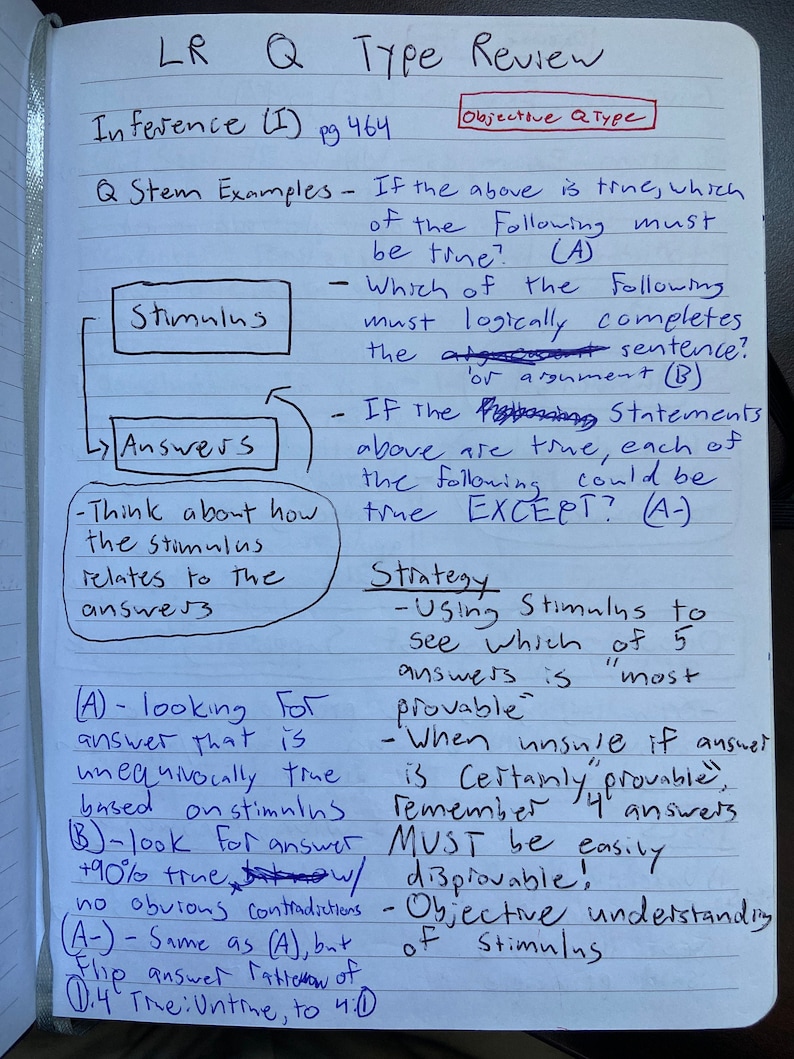 LR Q Type Review
Inference (I) pg 464
Objective Q Type
Q Stem Examples - If the above is true, which
of the following must
be true? (A)
- Which of the following
must logically completes
the argument sentence?
or argument (B)
- If the Statements
above are true, each of
the following could be
true EXCEPT? (A-)
Stimulus
Answers
- Think about how
the stimulus
relates to the
answers
Strategy
- Using Stimulus to
see which of 5
answers is "most
provable"
- When unsure if answer
is Certainly "provable",
remember 4 answers
MUST be easily
disprovable!
- Objective understanding
of stimulus
(A) - looking for
answer that is
unequivocally true
based on stimulus
(B) - look for answer
+90% true, w/
no obvious contradictions
(A-) - Same as (A), but
flip answer ratio of
1:4 True:Untrue, to 4:1